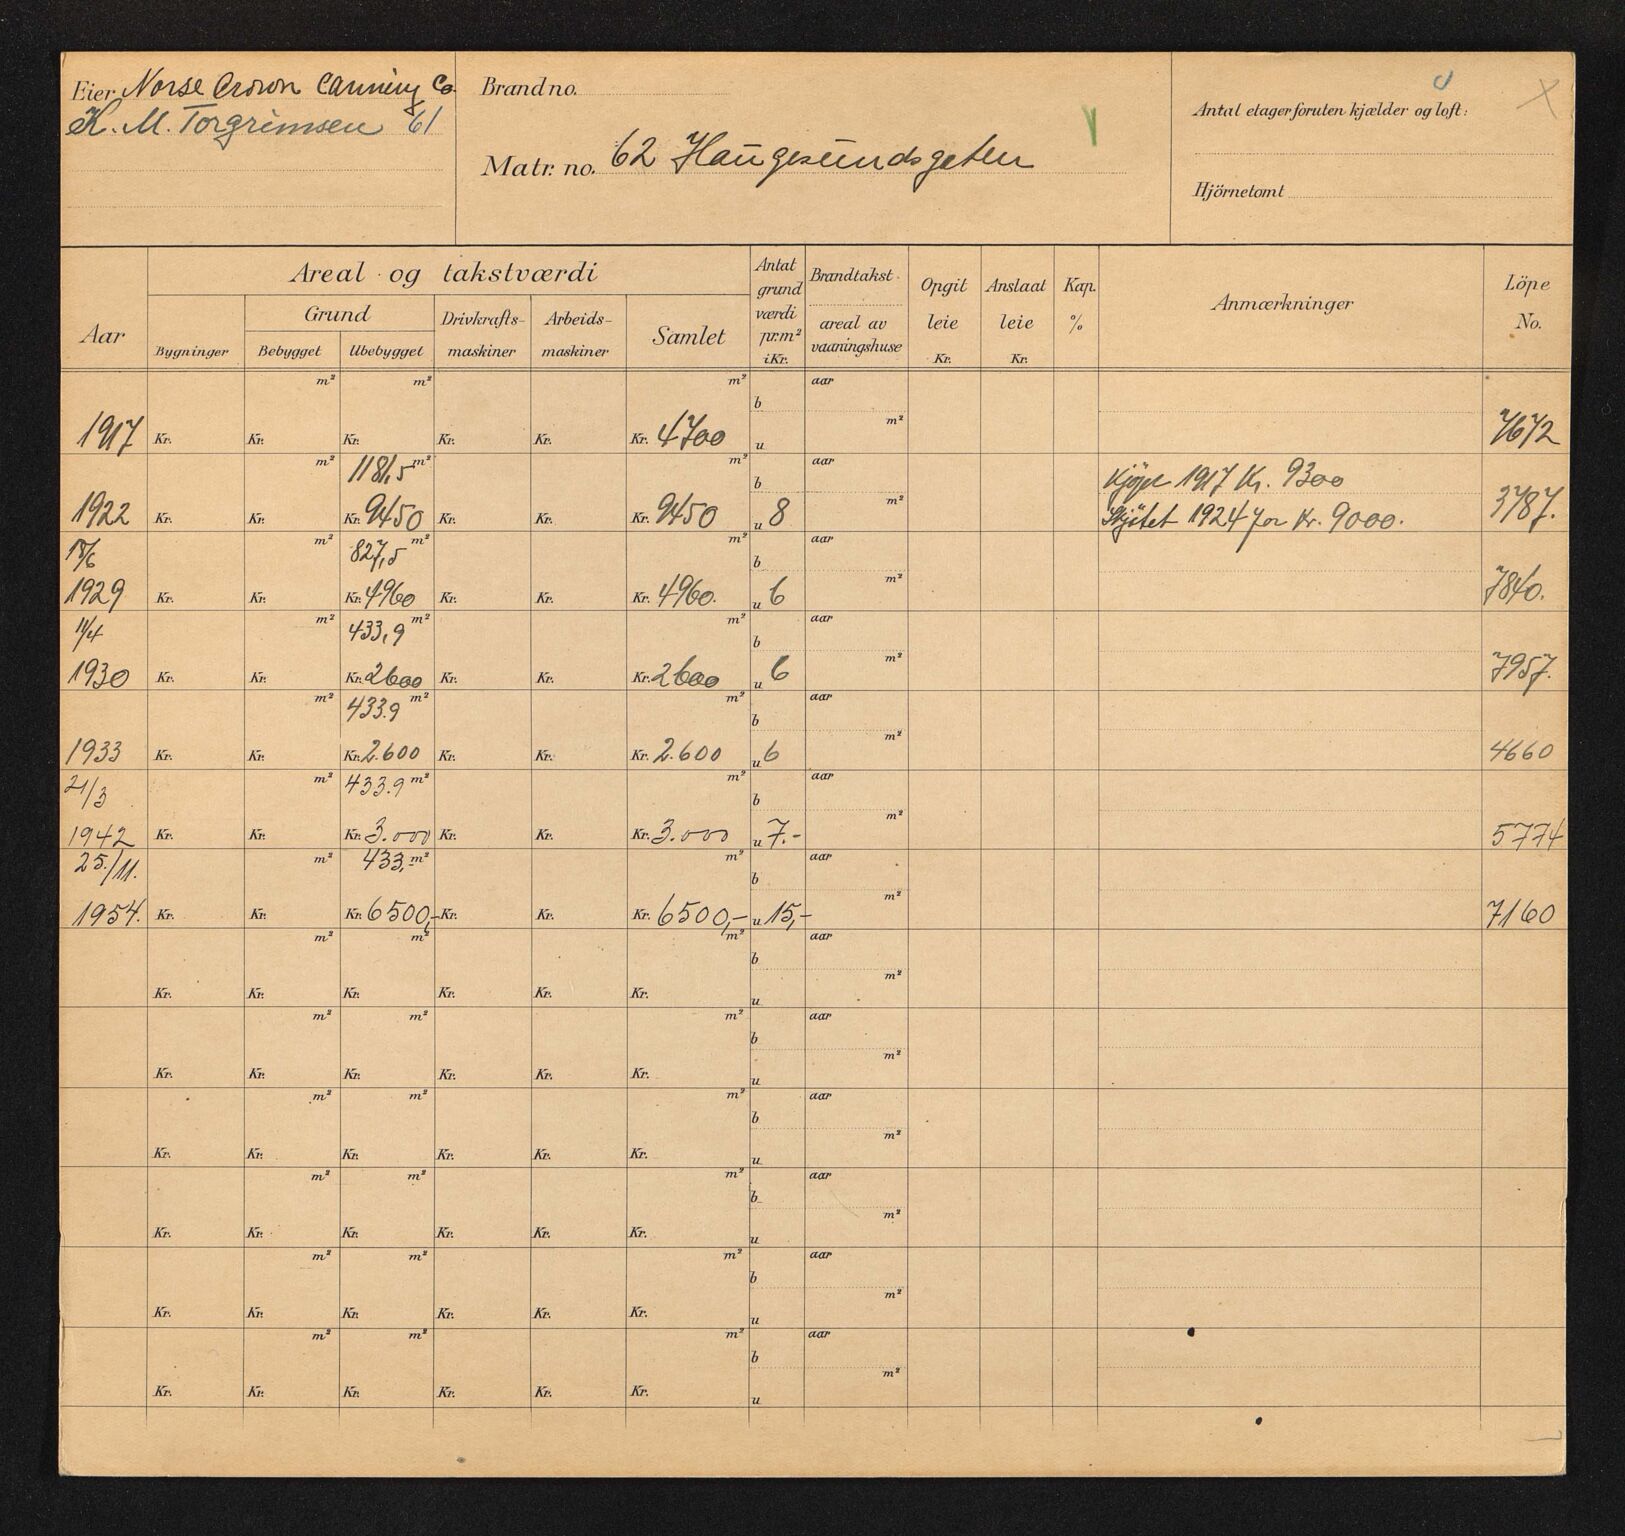 Eier Norse Crown Canning Co.
K. M. Torgrimsen 61
Brand no.
Matr. no. 62 Haugesundsgaten
Antal etager foruten kjælder og loft:
Hjörnetomt
Aar
Areal og takstværdi
Bygninger
Grund
Bebygget Ubebygget
Drivkrafts-
maskiner
Arbeids-
maskiner
Samlet
Antat
grund
værdi
pr. m²
i Kr.
Brandtakst
areal av
vaaningshuse
Opgit
leie
Kr.
Anslaat
leie
Kr.
Kap.
%
Anmærkninger
Löpe
No.
m² m² m² aar
b
m²
1917 Kr. Kr. Kr. Kr. Kr. Kr. 4700 u 7672
m² 1181,5 m² m² aar
b
m² Kjöpt 1917 Kr. 9300
1922 Kr. Kr. Kr. 9450 Kr. Kr. Kr. 9450 u 8 Skjötet 1924 for Kr. 9000. 3787.
18/6 m² 827,5 m² m² aar
b
m²
1929 Kr. Kr. Kr. 4960 Kr. Kr. Kr. 4960. u 6 7840.
11/4 m² 433,9 m² m² aar
b
m²
1930 Kr. Kr. Kr. 2600 Kr. Kr. Kr. 2600 u 6 7957.
m² 433.9 m² m² aar
b
m²
1933 Kr. Kr. Kr. 2.600 Kr. Kr. Kr. 2.600 u 6 4660
21/3 m² 433.9 m² m² aar
b
m²
1942 Kr. Kr. Kr. 3.000 Kr. Kr. Kr. 3.000 u 7.- 5774
25./11. m² 433,- m² m² aar
b
m²
1954. Kr. Kr. Kr. 6500,- Kr. Kr. Kr. 6500,- u 15,- 7160
m² m² m² aar
b
m²
Kr. Kr. Kr. Kr. Kr. Kr. u
m² m² m² aar
b
m²
Kr. Kr. Kr. Kr. Kr. Kr. u
m² m² m² aar
b
m²
Kr. Kr. Kr. Kr. Kr. Kr. u
m² m² m² aar
b
m²
Kr. Kr. Kr. Kr. Kr. Kr. u
m² m² m² aar
b
m²
Kr. Kr. Kr. Kr. Kr. Kr. u
m² m² m² aar
b
m²
Kr. Kr. Kr. Kr. Kr. Kr. u